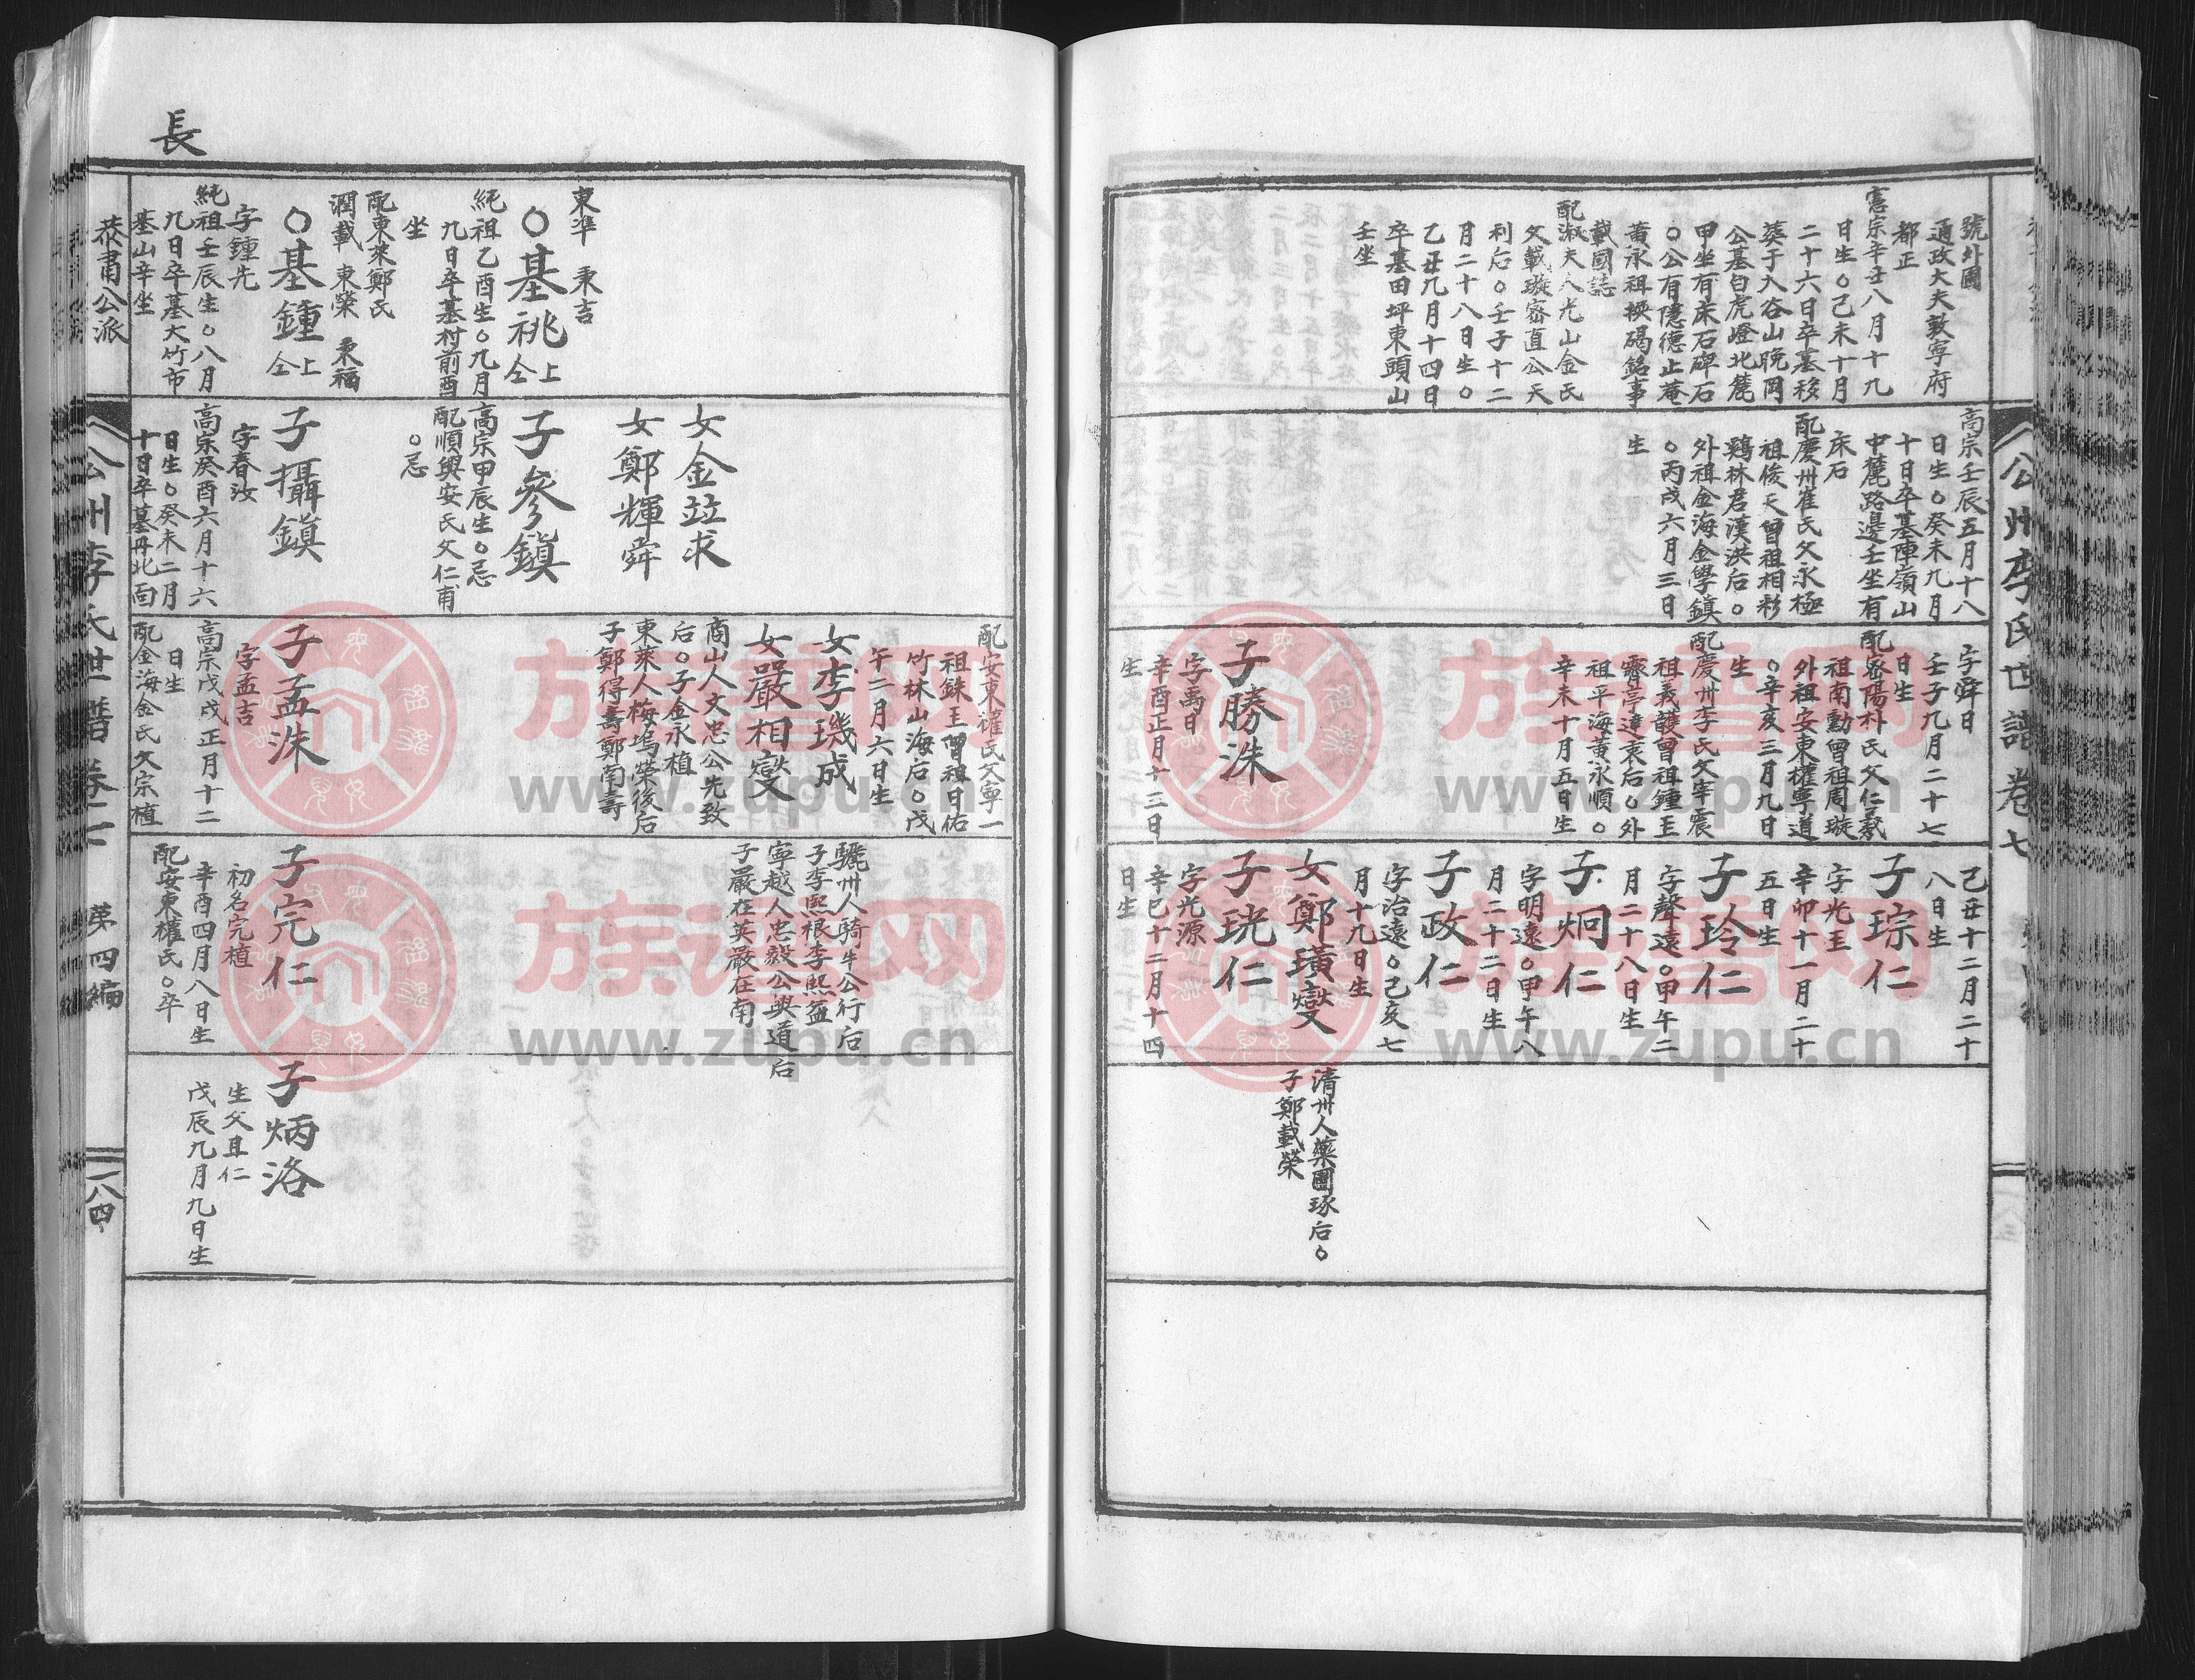 公州李氏世譜 卷七
號外圃
通政大夫敦寧府
都正
憲宗辛丑八月十九
日生○己未十月
二十六日卒墓移
葬于入谷山晩岡
公墓白虎嶝北麓
甲坐有床石碑石
○公有隱德止菴
黃永祖撰碣銘事
載國誌
配淑夫人光山金氏
父載璇密直公天
利后○壬子十二
月二十八日生○
乙丑九月十四日
卒墓田坪東頭山
壬坐
高宗壬辰五月十八
日生○癸未九月
十日卒墓陣嶺山
中麓路邊壬坐有
床石
配慶州崔氏父永極
祖俊天曾祖相杉
鷄林君漢洪后○
外祖金海金學鎭
○丙戌六月三日
生
字舜日
壬子九月二十七
日生
配密陽朴氏父仁羲
祖南勳曾祖周璇
外祖安東權寧道
○辛亥三月九日
生
配慶州李氏父宰宸
祖義護曾祖鍾玉
霽亭達衷后○外
祖平海黃永順○
辛未十月五日生
子勝洙
字禹日
辛酉正月十三日
生
己丑十二月二十
八日生
子琮仁
字光玉
辛卯十一月二十
五日生
子玲仁
字聲遠○甲午二
月二十八日生
子炯仁
字明遠○甲午八
月二十二日生
子政仁
字治遠○己亥七
月十九日生
女鄭璜燮
子珖仁
字光源
辛巳十二月十四
日生
清州人藥圃琢后○
子鄭載榮
長
東準 秉吉
○基祧 仝上
純祖乙酉生○九月
九日卒墓村前酉
坐
配東萊鄭氏
潤載 東榮 秉福
○基鍾 仝上
字鍾先
純祖壬辰生○八月
九日卒墓大竹市
基山辛坐
女金竝求
女鄭輝舜
子參鎭
高宗甲辰生○忌
配順興安氏父仁甫
○忌
子攝鎭
字春汝
高宗癸酉六月十六
日生○癸未二月
十日卒墓丹北面
配安東權氏父寧一
祖銖玉曾祖日佑
竹林山海后○戊
午二月六日生
女李璣成
女嚴相燮
商山人文忠公先致
后○子金永植
東萊人梅塢榮後后
子鄭得壽鄭南壽
子孟洙
字孟吉
高宗戊戌正月十二
日生
配金海金氏父宗植
驪州人騎牛公行后
子李熙根李熙益
寧越人忠毅公興道后
子嚴在英嚴在南
子完仁
初名完植
辛酉四月八日生
配安東權氏○卒
子炳洛
生父且仁
戊辰九月九日生
恭肅公派
公州李氏世譜 卷七 第四編
一八四
族谱网
www.zupu.cn
族谱网
www.zupu.cn
族谱网
www.zupu.cn
族谱网
www.zupu.cn